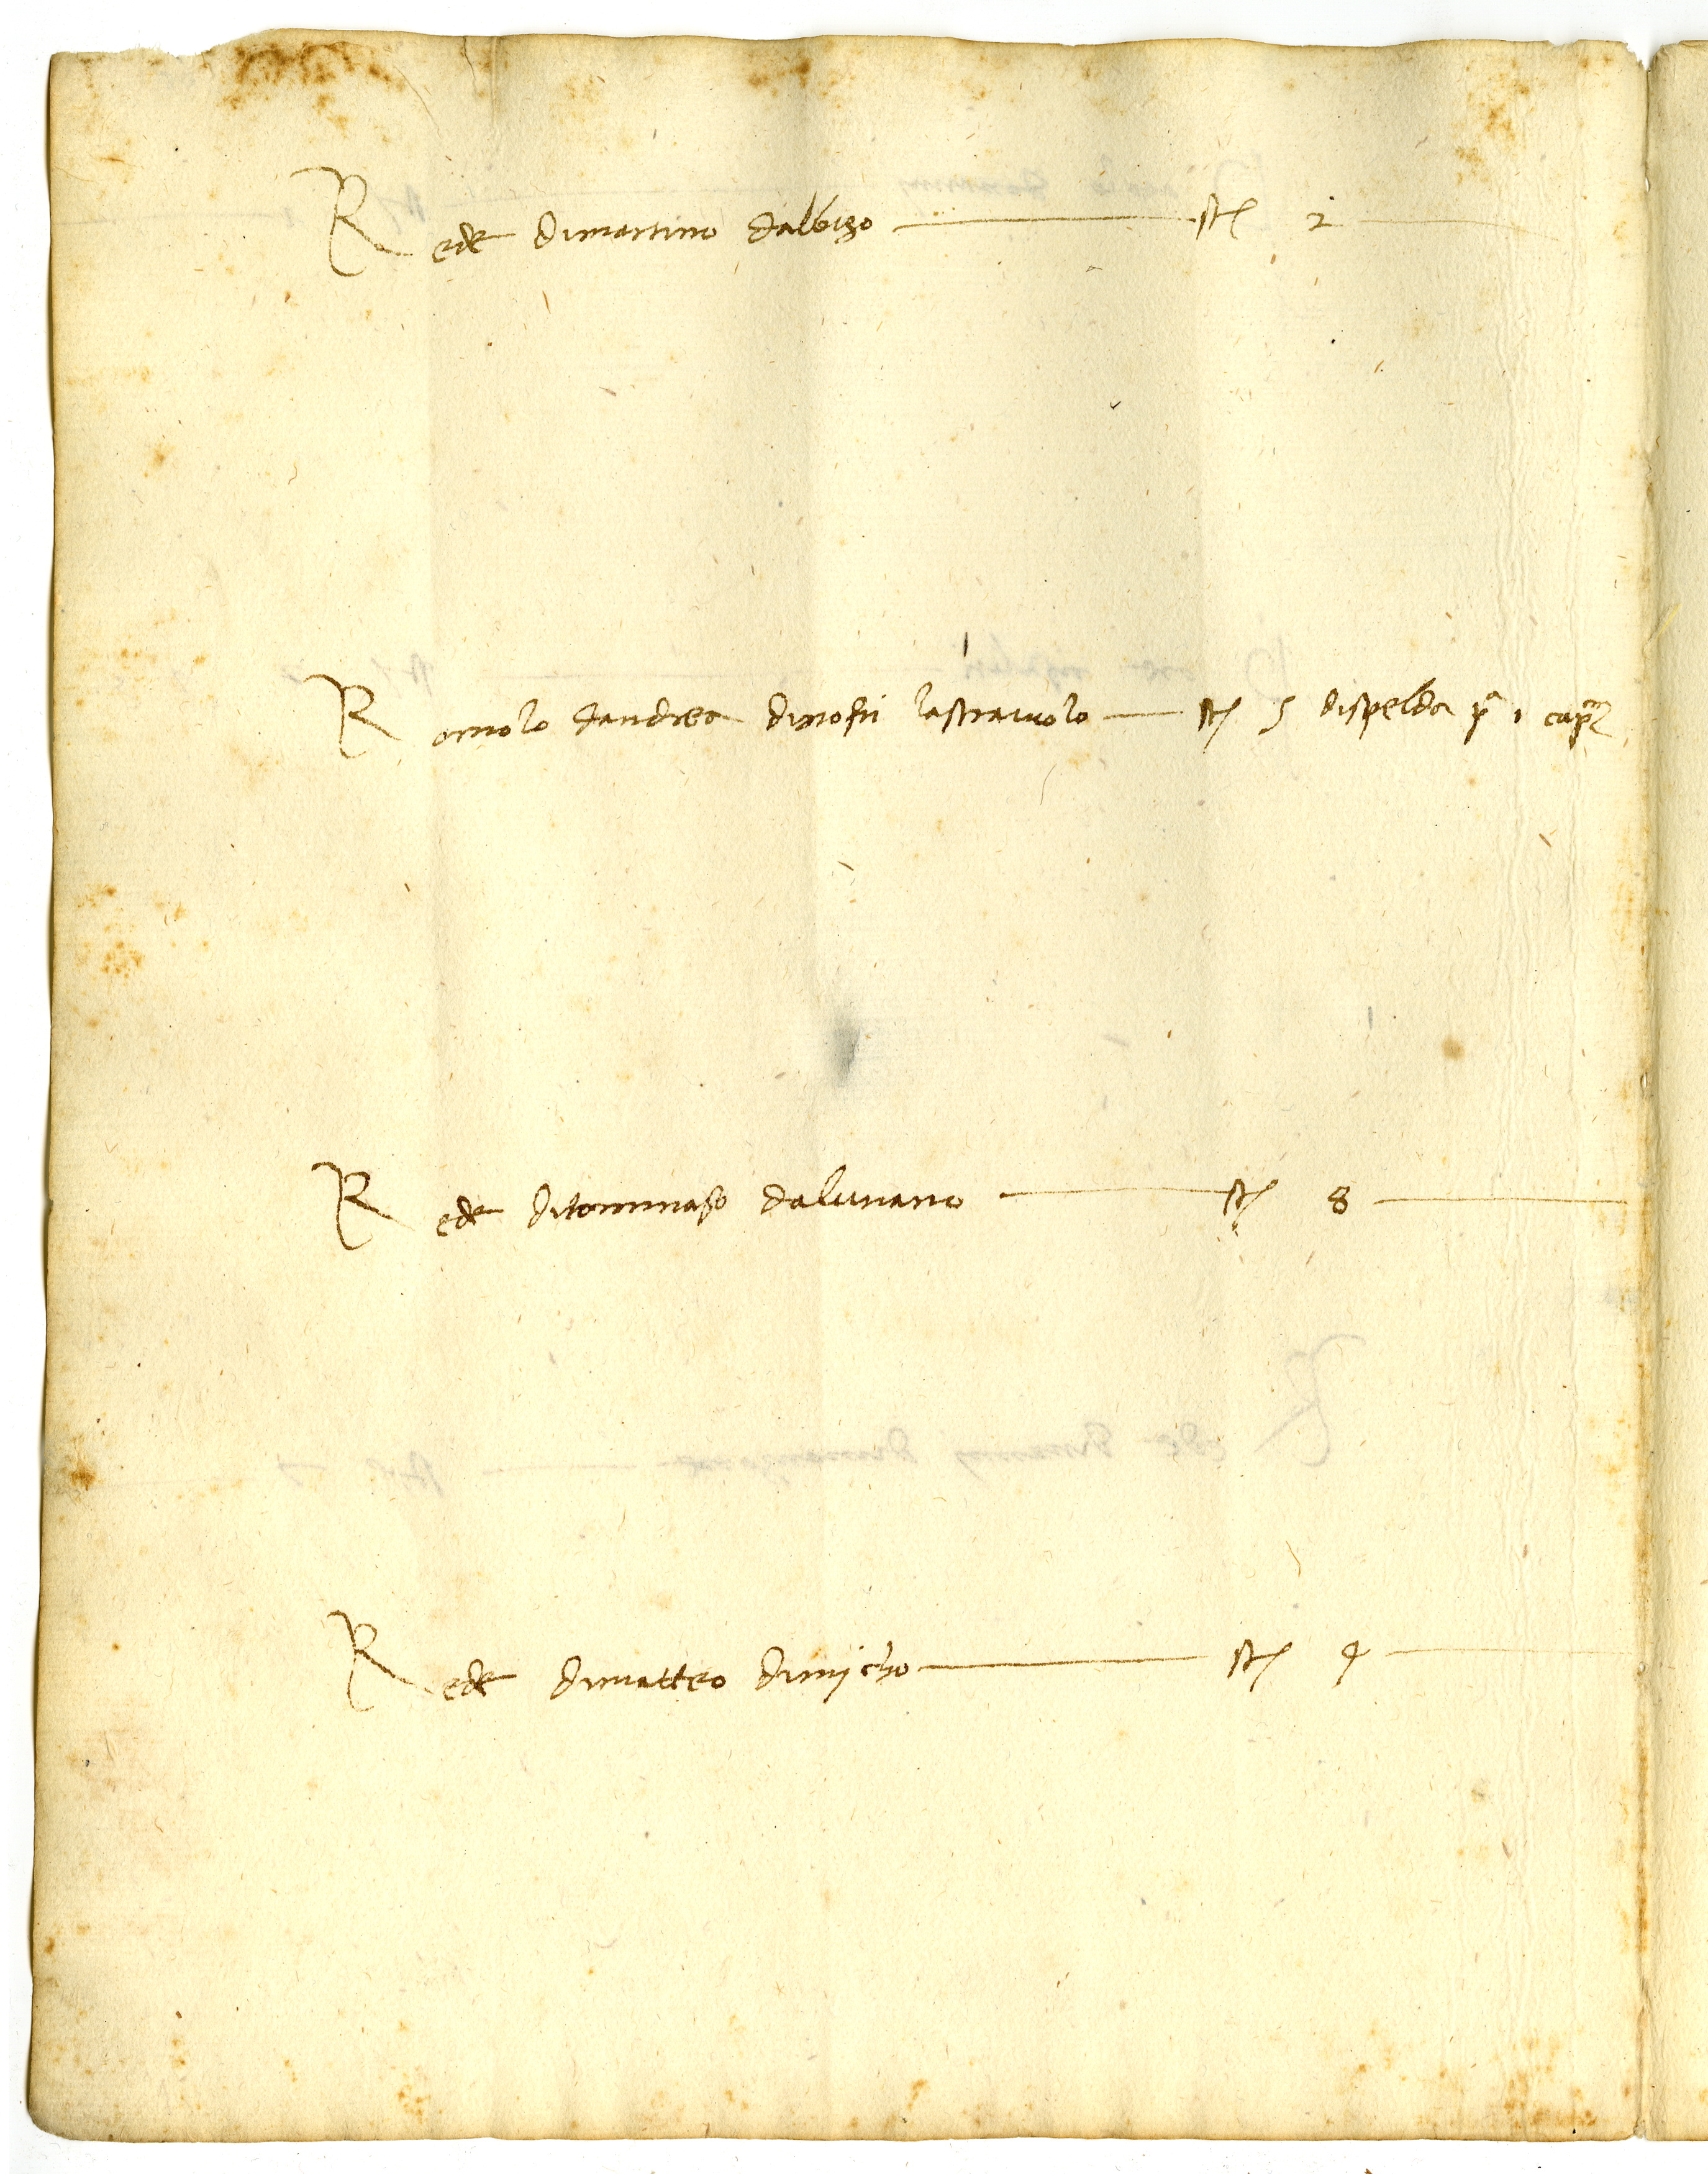 Rede dimartino dalbizo — st 2 —
Romolo dandrea dinofri lastraiuolo — st 5 dispelda p 1 cap
Rede ditommaso dalunano — st 8 —
Rede dimatteo dimicho — st 4 —